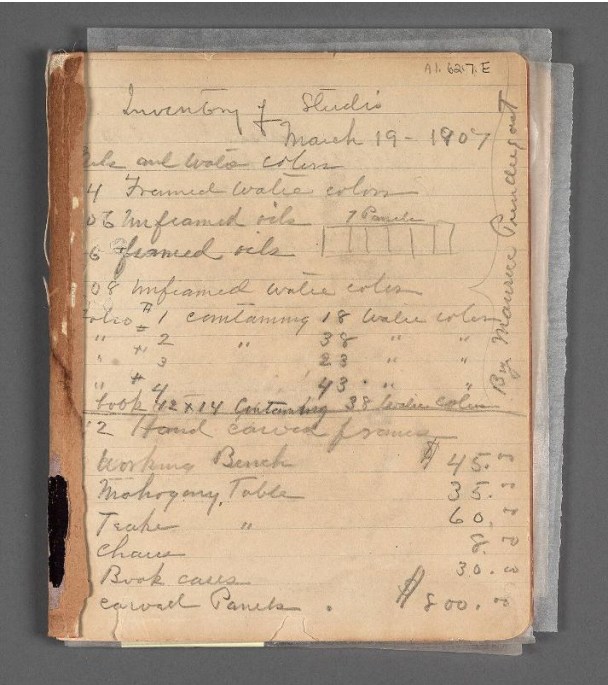 A1. 627. E
Inventory of Studio
March 19 - 1907
and water colors
4 Framed water colors
06 unframed oils
7 Panels
6 framed oils
08 unframed water colors
folio # 1 containing 18 water colors
" # 2 " 38
" # 3 23 " "
" # 4 43 " "
book 42 x 14 Containing 38 water colors
2 Hand carved frames
Working Bench $ 45.
Mahogany Table 35.
Teake " 60.
Chairs 8.
Book cases 30.
carved Panels . $ 800.
By Maurice Prendergast